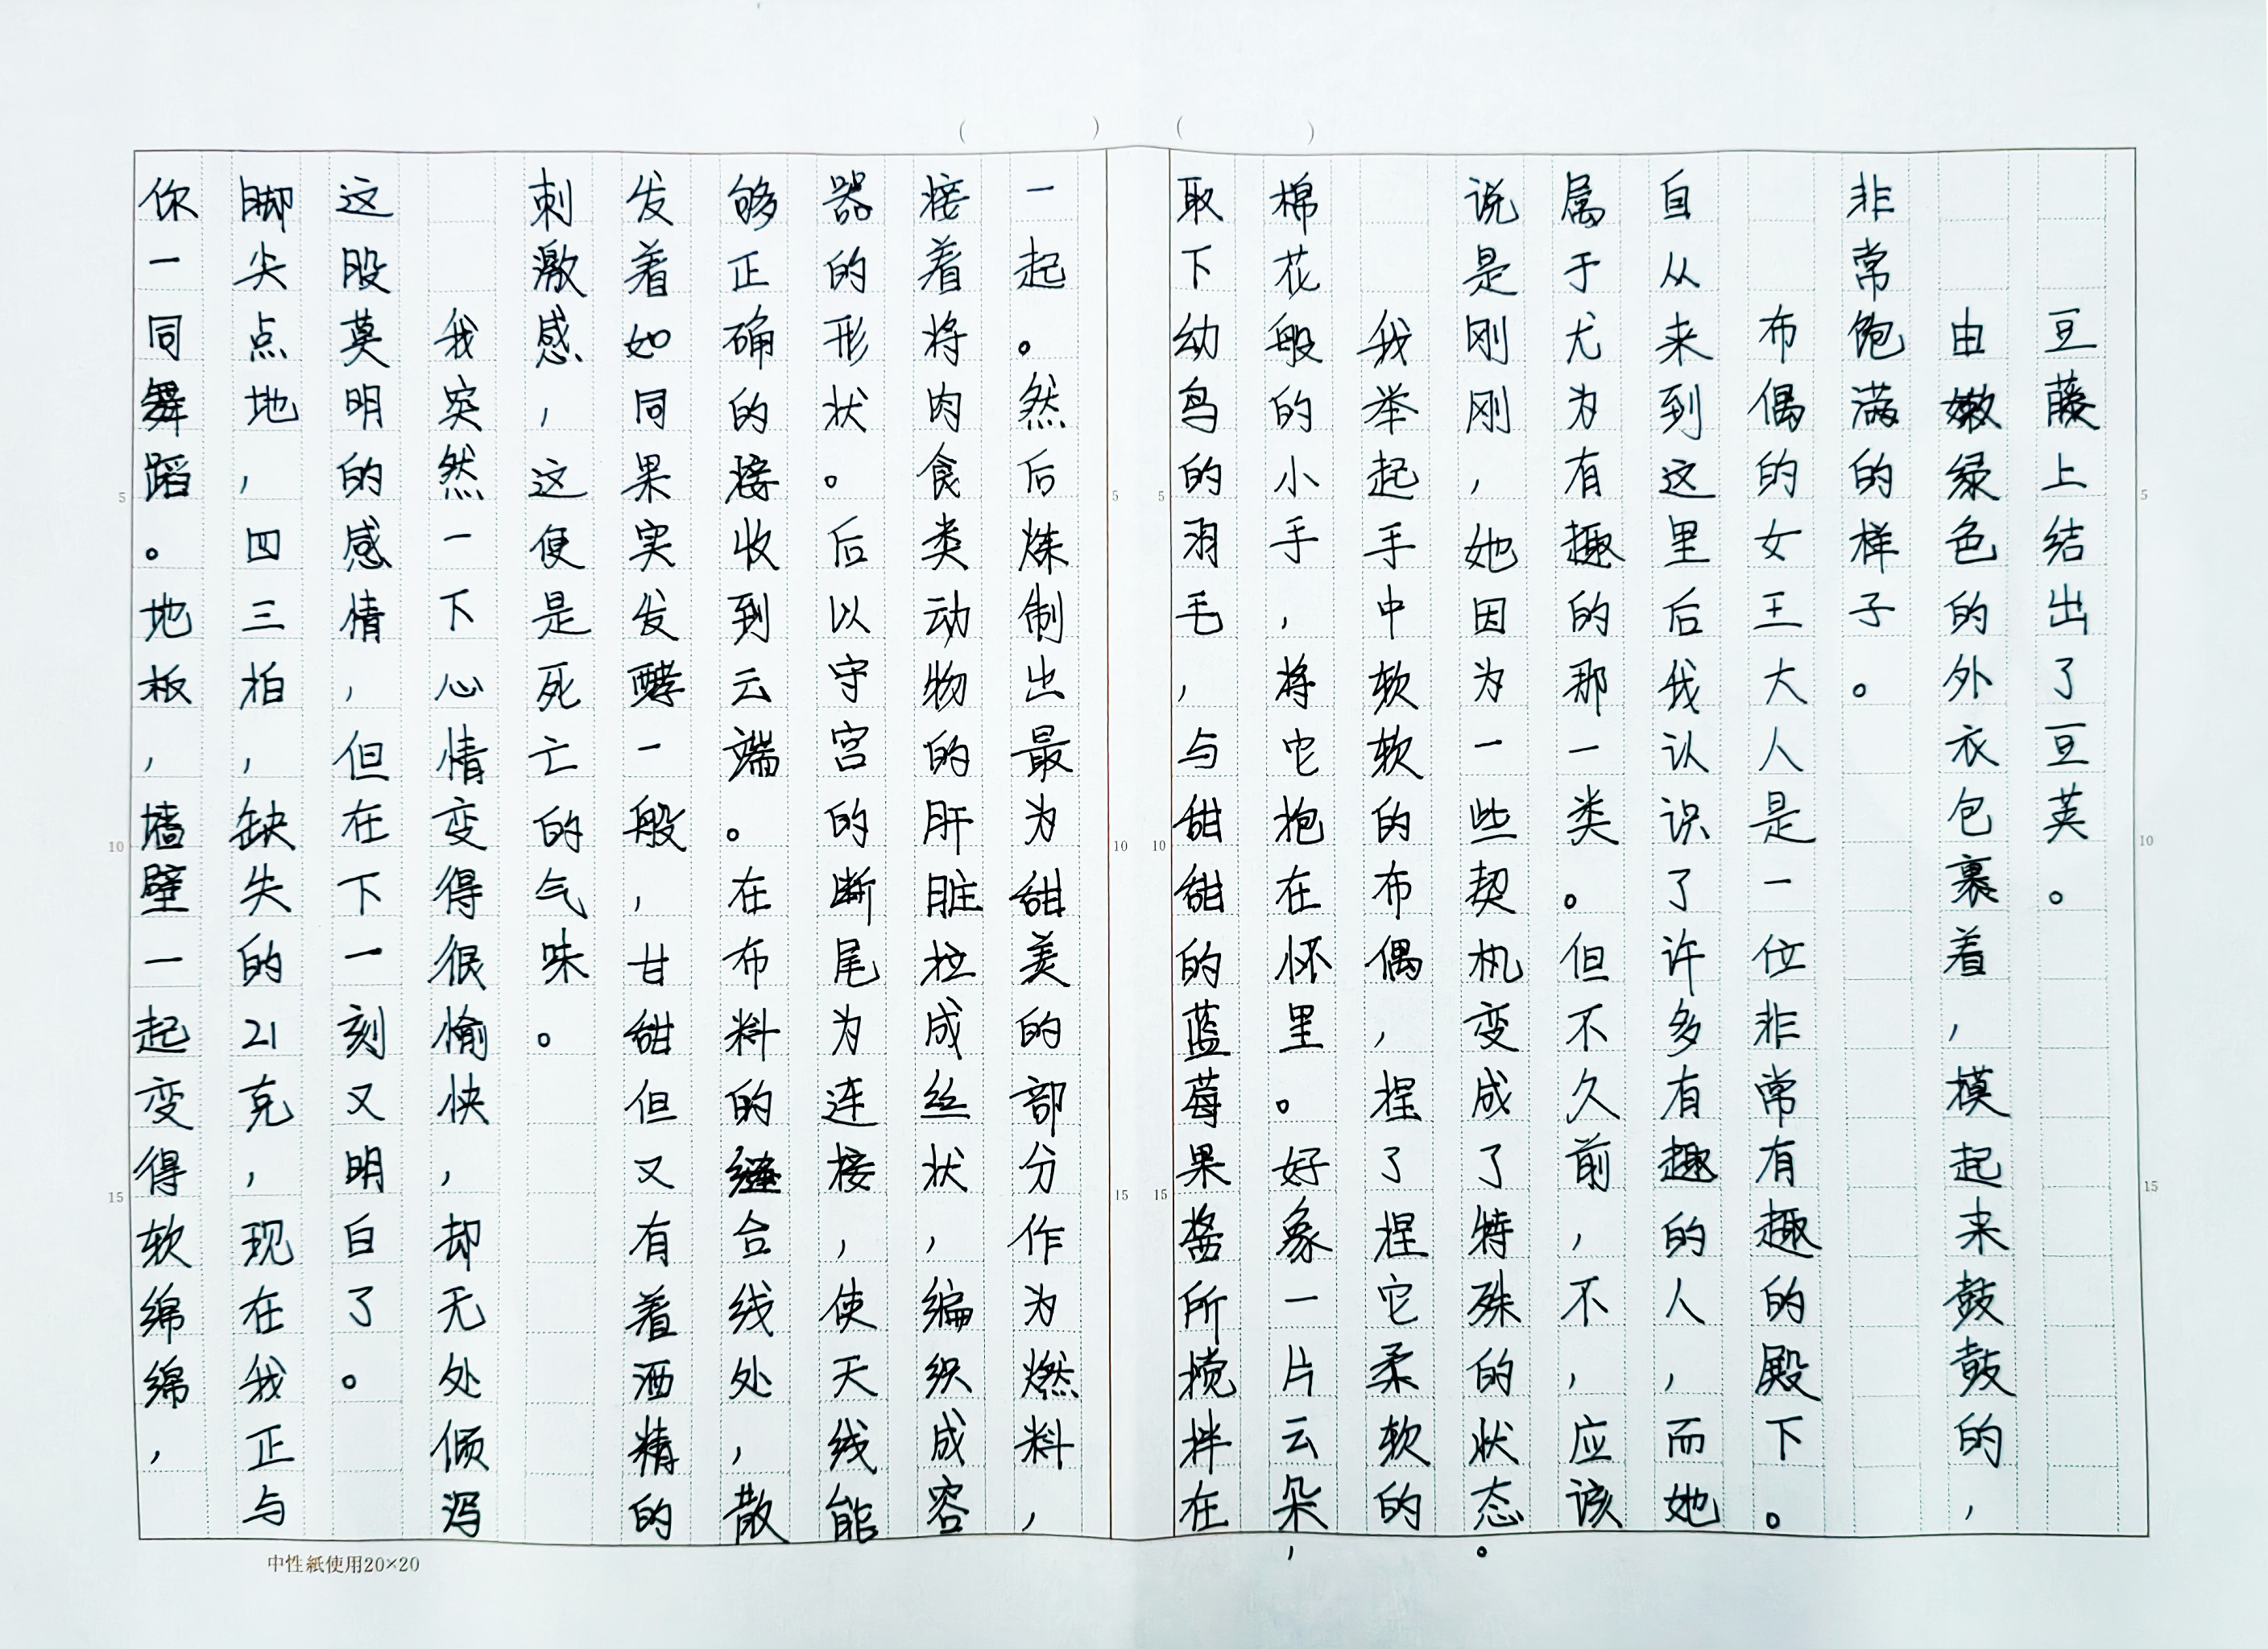 ( ) ( )
豆藤上结出了豆荚。
由嫩绿色的外衣包裹着，模起来鼓鼓的，
非常饱满的样子。
布偶的女王大人是一位非常有趣的殿下。
自从来到这里后我认识了许多有趣的人，而她
属于尤为有趣的那一类。但不久前，不，应该
说是刚刚，她因为一些契机变成了特殊的状态。
我举起手中软软的布偶，捏了捏它柔软的
棉花般的小手，将它抱在怀里。好象一片云朵，
取下幼鸟的羽毛，与甜甜的蓝莓果酱所搅拌在
一起。然后炼制出最为甜美的部分作为燃料，
接着将肉食类动物的肝脏拉成丝状，编织成容
器的形状。后以守宫的断尾为连接，使天线能
够正确的接收到云端。在布料的缝合线处，散
发着如同果实发酵一般，甘甜但又有着酒精的
刺激感，这便是死亡的气味。
我突然一下心情变得很愉快，却无处倾泻
这股莫明的感情，但在下一刻又明白了。
脚尖点地，四三拍，缺失的21克，现在我正与
你一同舞蹈。地板，墙壁一起变得软绵绵，
5
10
15
5
10
15
5
10
15
5
10
15
中性紙使用20×20